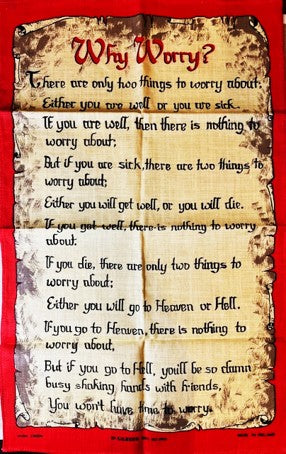 Why Worry?
There are only two things to worry about:
Either you are well or you are sick.
If you are well, then there is nothing to
worry about;
But if you are sick, there are two things to
worry about;
Either you will get well, or you will die.
If you get well, there is nothing to worry
about;
If you die, there are only two things to
worry about;
Either you will go to Heaven or Hell.
If you go to Heaven, there is nothing to
worry about,
But if you go to Hell, you'll be so damn
busy shaking hands with friends,
You won't have time to worry.